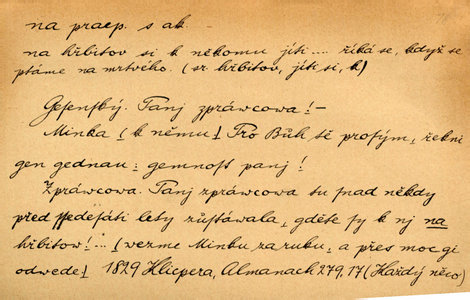 na praep. s ak.
na hřbitov si k někomu jíti .... říká se, když se
ptáme na mrtvého. (sr. hřbitov, jíti, si, k)
Gesenský. Panj zpráwcowa! –
Minka (k němu) Pro Bůh sě prosým, řekni
gen gednau: gemnost panj!
Zpráwcowa. Panj zpráwcowa tu snad někdy
před padesáti lety zůstáwala, gděte sy k nj na
hřbitow!... (wezme Minku za ruku, a přes moc gi
odwede) 1829 Klicpera, Almanach 279.17 (Každý něco)